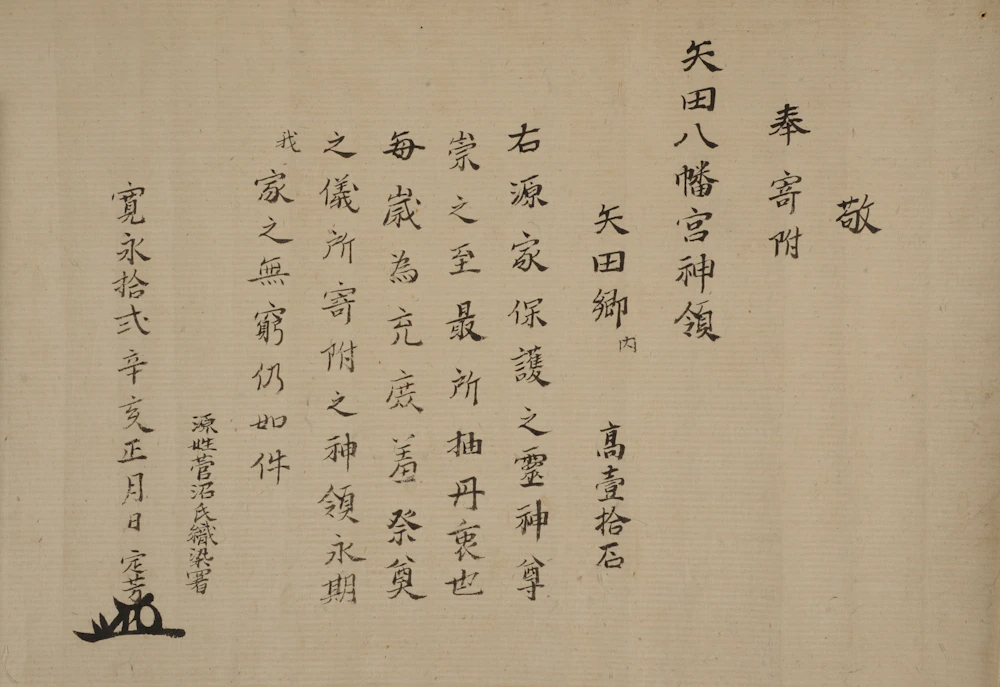 敬
奉寄附
矢田八幡宮神領
矢田郷内 高壹拾石
右源家保護之靈神尊
崇之至最所抽丹衷也
毎歳為充庶羞祭奠
之儀所寄附之神領永期
我家之無窮仍如件
源姓菅沼氏織染署
寛永拾弐辛亥正月日 定芳